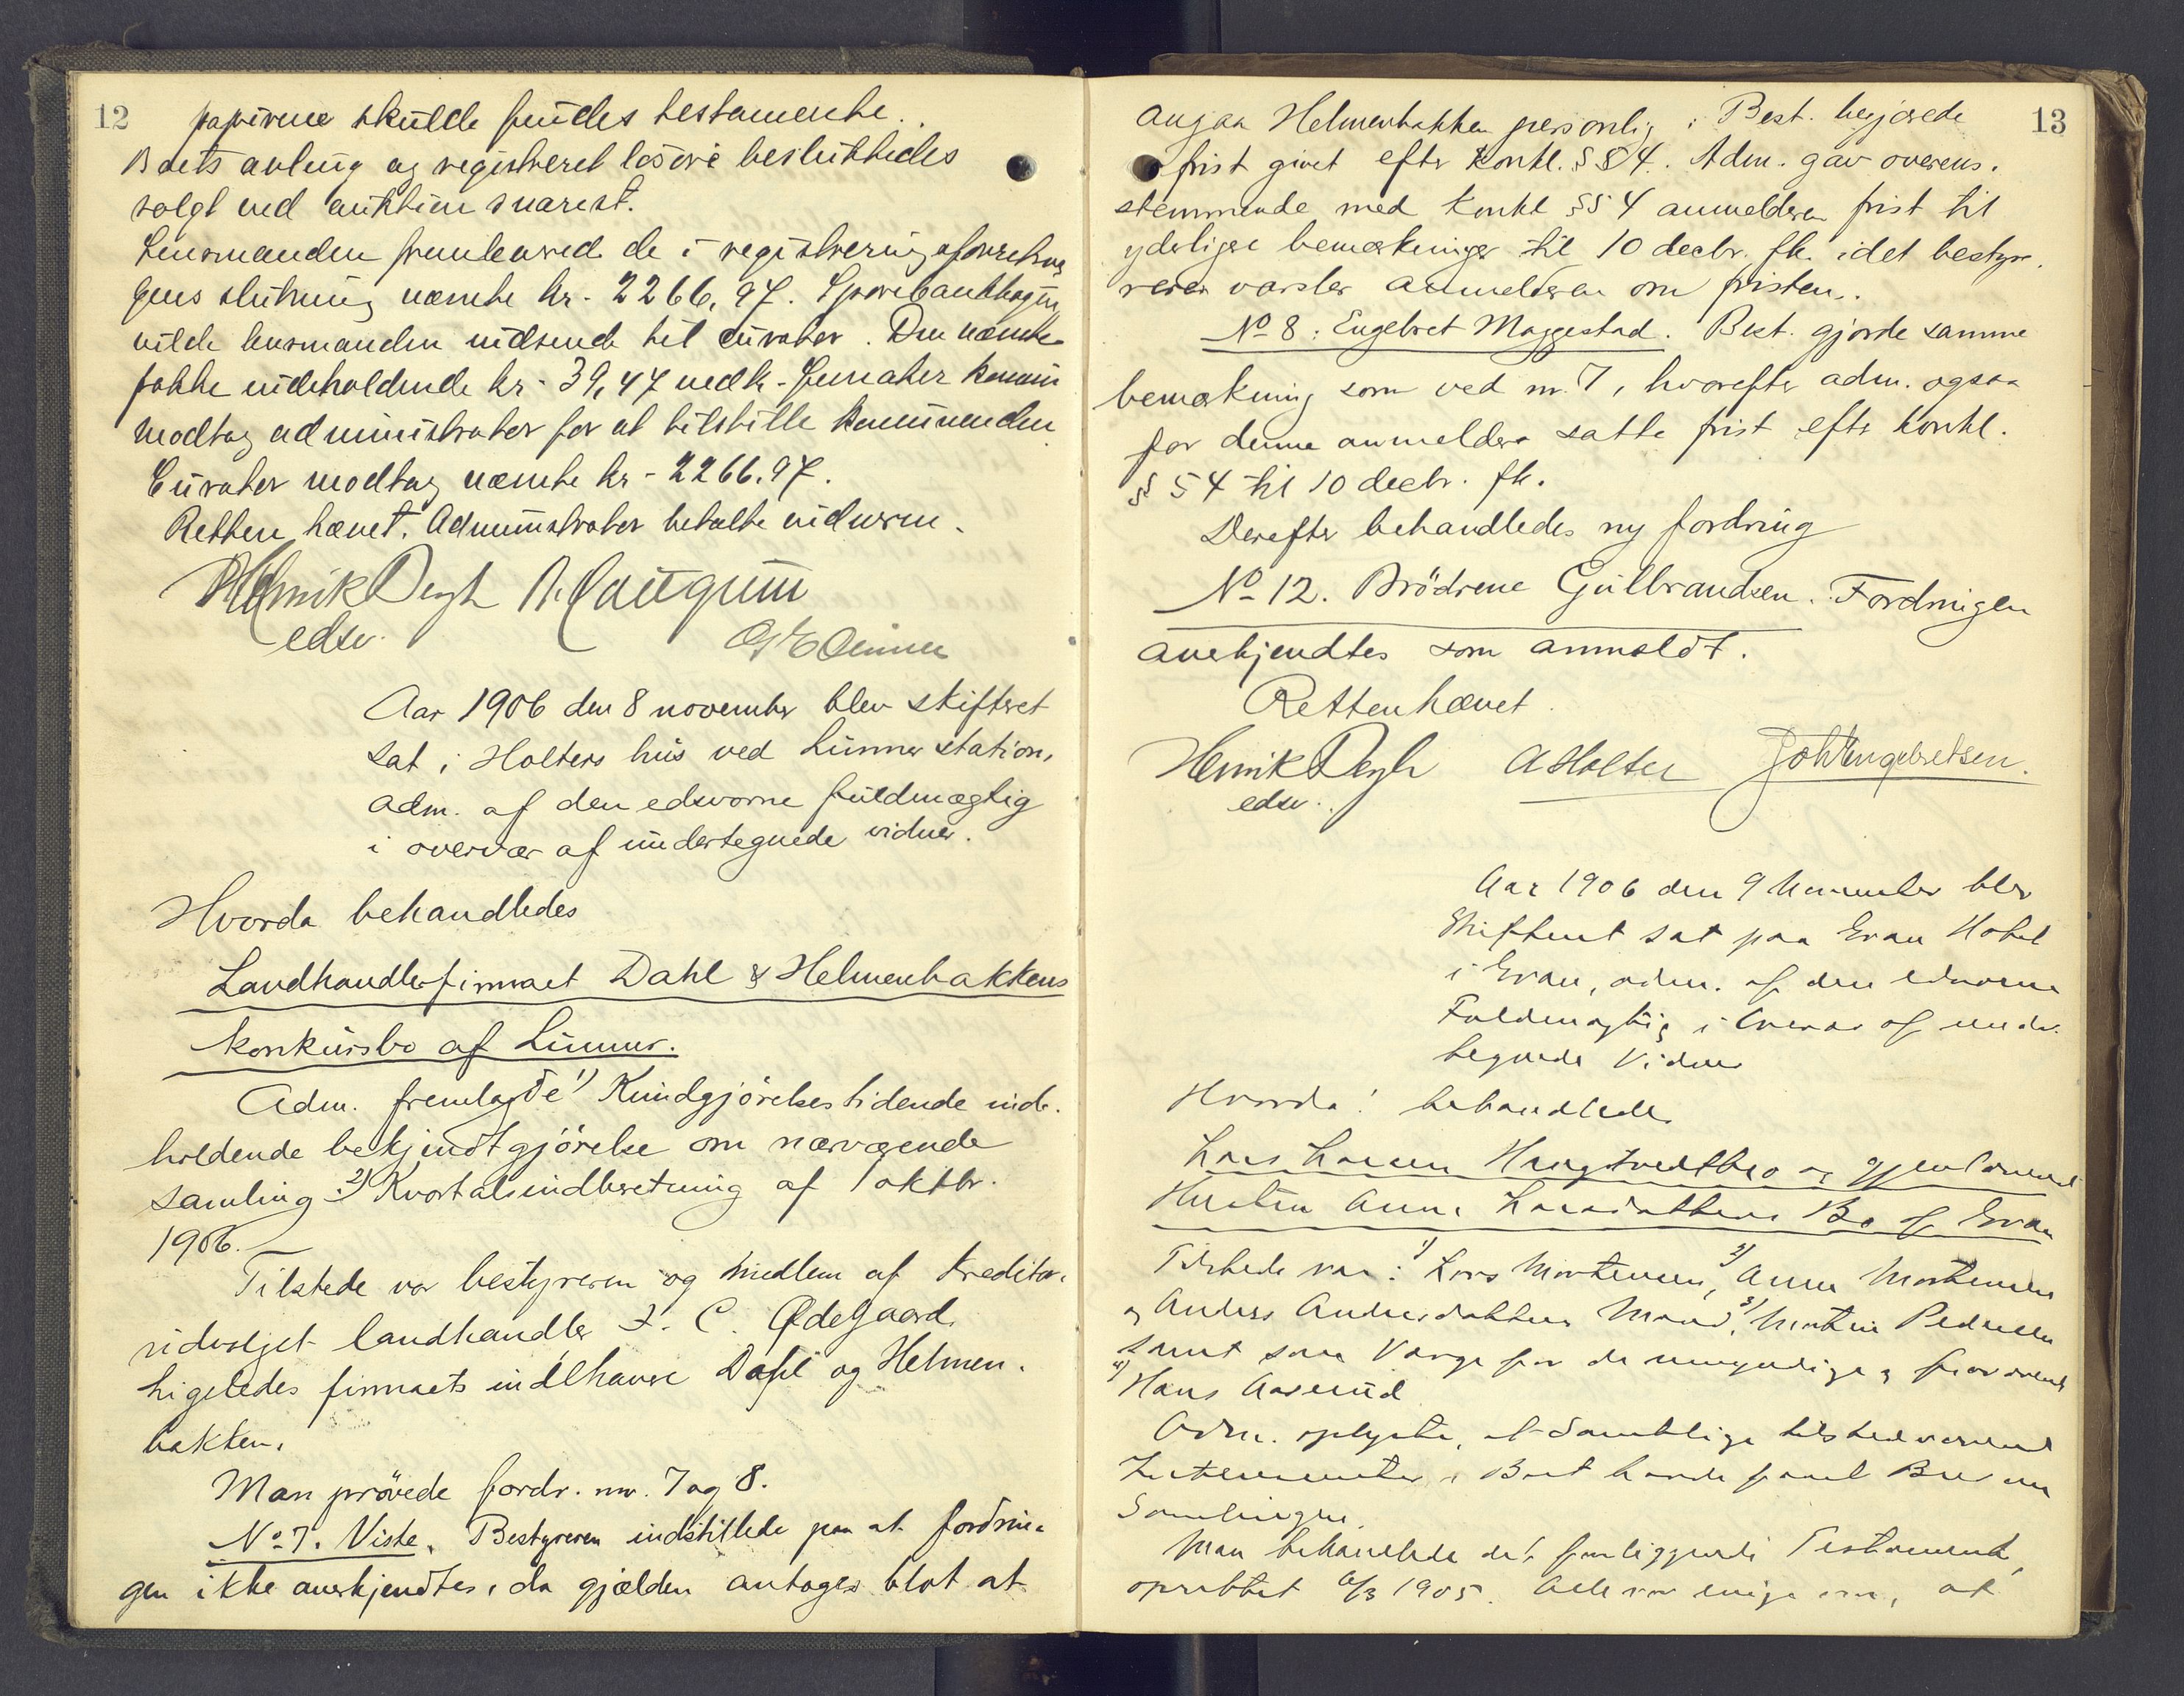 12
papirene skulde findes testamente.
Boets avling og registreret løsøre besluttedes
solgt ved auktion snarest.
Lensmanden fremleverede de i registreringsforretnin
gens slutning nævnte kr. 2266,97. Sparebankbogen
vilde lensmanden indsende til curator. Den nævnte
pakke indeholdende kr. 39,47 vedk.
modtog administrator for at tilstille
Curator modtog nævnte kr. 2266.97.
Retten hævet. Administrator betalte vidnerne.
Henrik Degh
edsv.
Aar 1906 den 8 november blev skifteret
sat i Holters hus ved Lunner station,
adm. af den edsvorne fuldmægtig
i overvær af undertegnede vidner.
Hvorda behandledes
Landhandlerfirmaet Dahl & Helmenbakkens
konkursbo af Lunner.
Adm. fremlagde 1) Kundgjörelsestidende inde-
holdende bekjendtgjörelse om nærværende
samling. 2) Kvartalsindberetning af 1 oktbr.
1906.
Tilstede var bestyreren og medlem af kreditor-
udvalget landhandler Ødegaard,
ligeledes firmaets indehavere Dahl og Helmen-
bakken.
Man prövede fordr. nr. 7 og 8.
No 7. Viste. Bestyreren indstillede paa at fordrin-
gen ikke anerkjendtes, da gjælden antages blot at
13
angaa Helmenbakken personlig. Best. begjærede
frist givet efter konkl. § 84. Adm. gav overens-
stemmende med konkl §54 anmelderen frist til
yderligere bemærkninger til 10 decbr. fk. idet bestyre-
reren varsler anmelderen om fristen.
No 8. Engebret Moggestad. Best. gjorde samme
bemærkning som ved nr. 7, hvorefter adm. ogsaa
for denne anmelder satte frist efter konkl.
§ 54 til 10 decbr. fk.
Derefter behandledes ny fordring
No 12. Brödrene Gulbrandsen. Fordringen
anerkjendtes som anmeldt.
Retten hævet.
Henrik Degh A Holter Joh Engebretsen.
edsv.
Aar 1906 den 9 November blev
Skifteret sat paa Gran Hotel
i Gran, adm. af den edsvorne
Fuldmægtig i Overvær af under-
tegnede Vidner
Hvorda! behandledes
Lars Larsen og gjenlevende
Hustru Anne Larsdatters Bo af Gran
Tilstede var: 1) Lars Mortensen, 2) Anne Mortensen
og Anders Andersdatters Mand, 3) Martin Pedersen
samt som Værge for de umyndige og fraværende
4) Hans Aaserud
Adm. oplyste, at samtlige tilstedeværende
Interessenter i Boet havde faaet Brev om
Samlingen.
Man behandlede det foreliggende Testament,
oprettet 6/3 1905. Alle var enige om, at